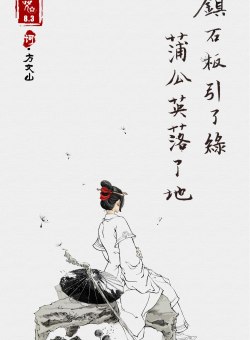 鎮石板引了綠
蒲公英落了地
8.3
词·方文山